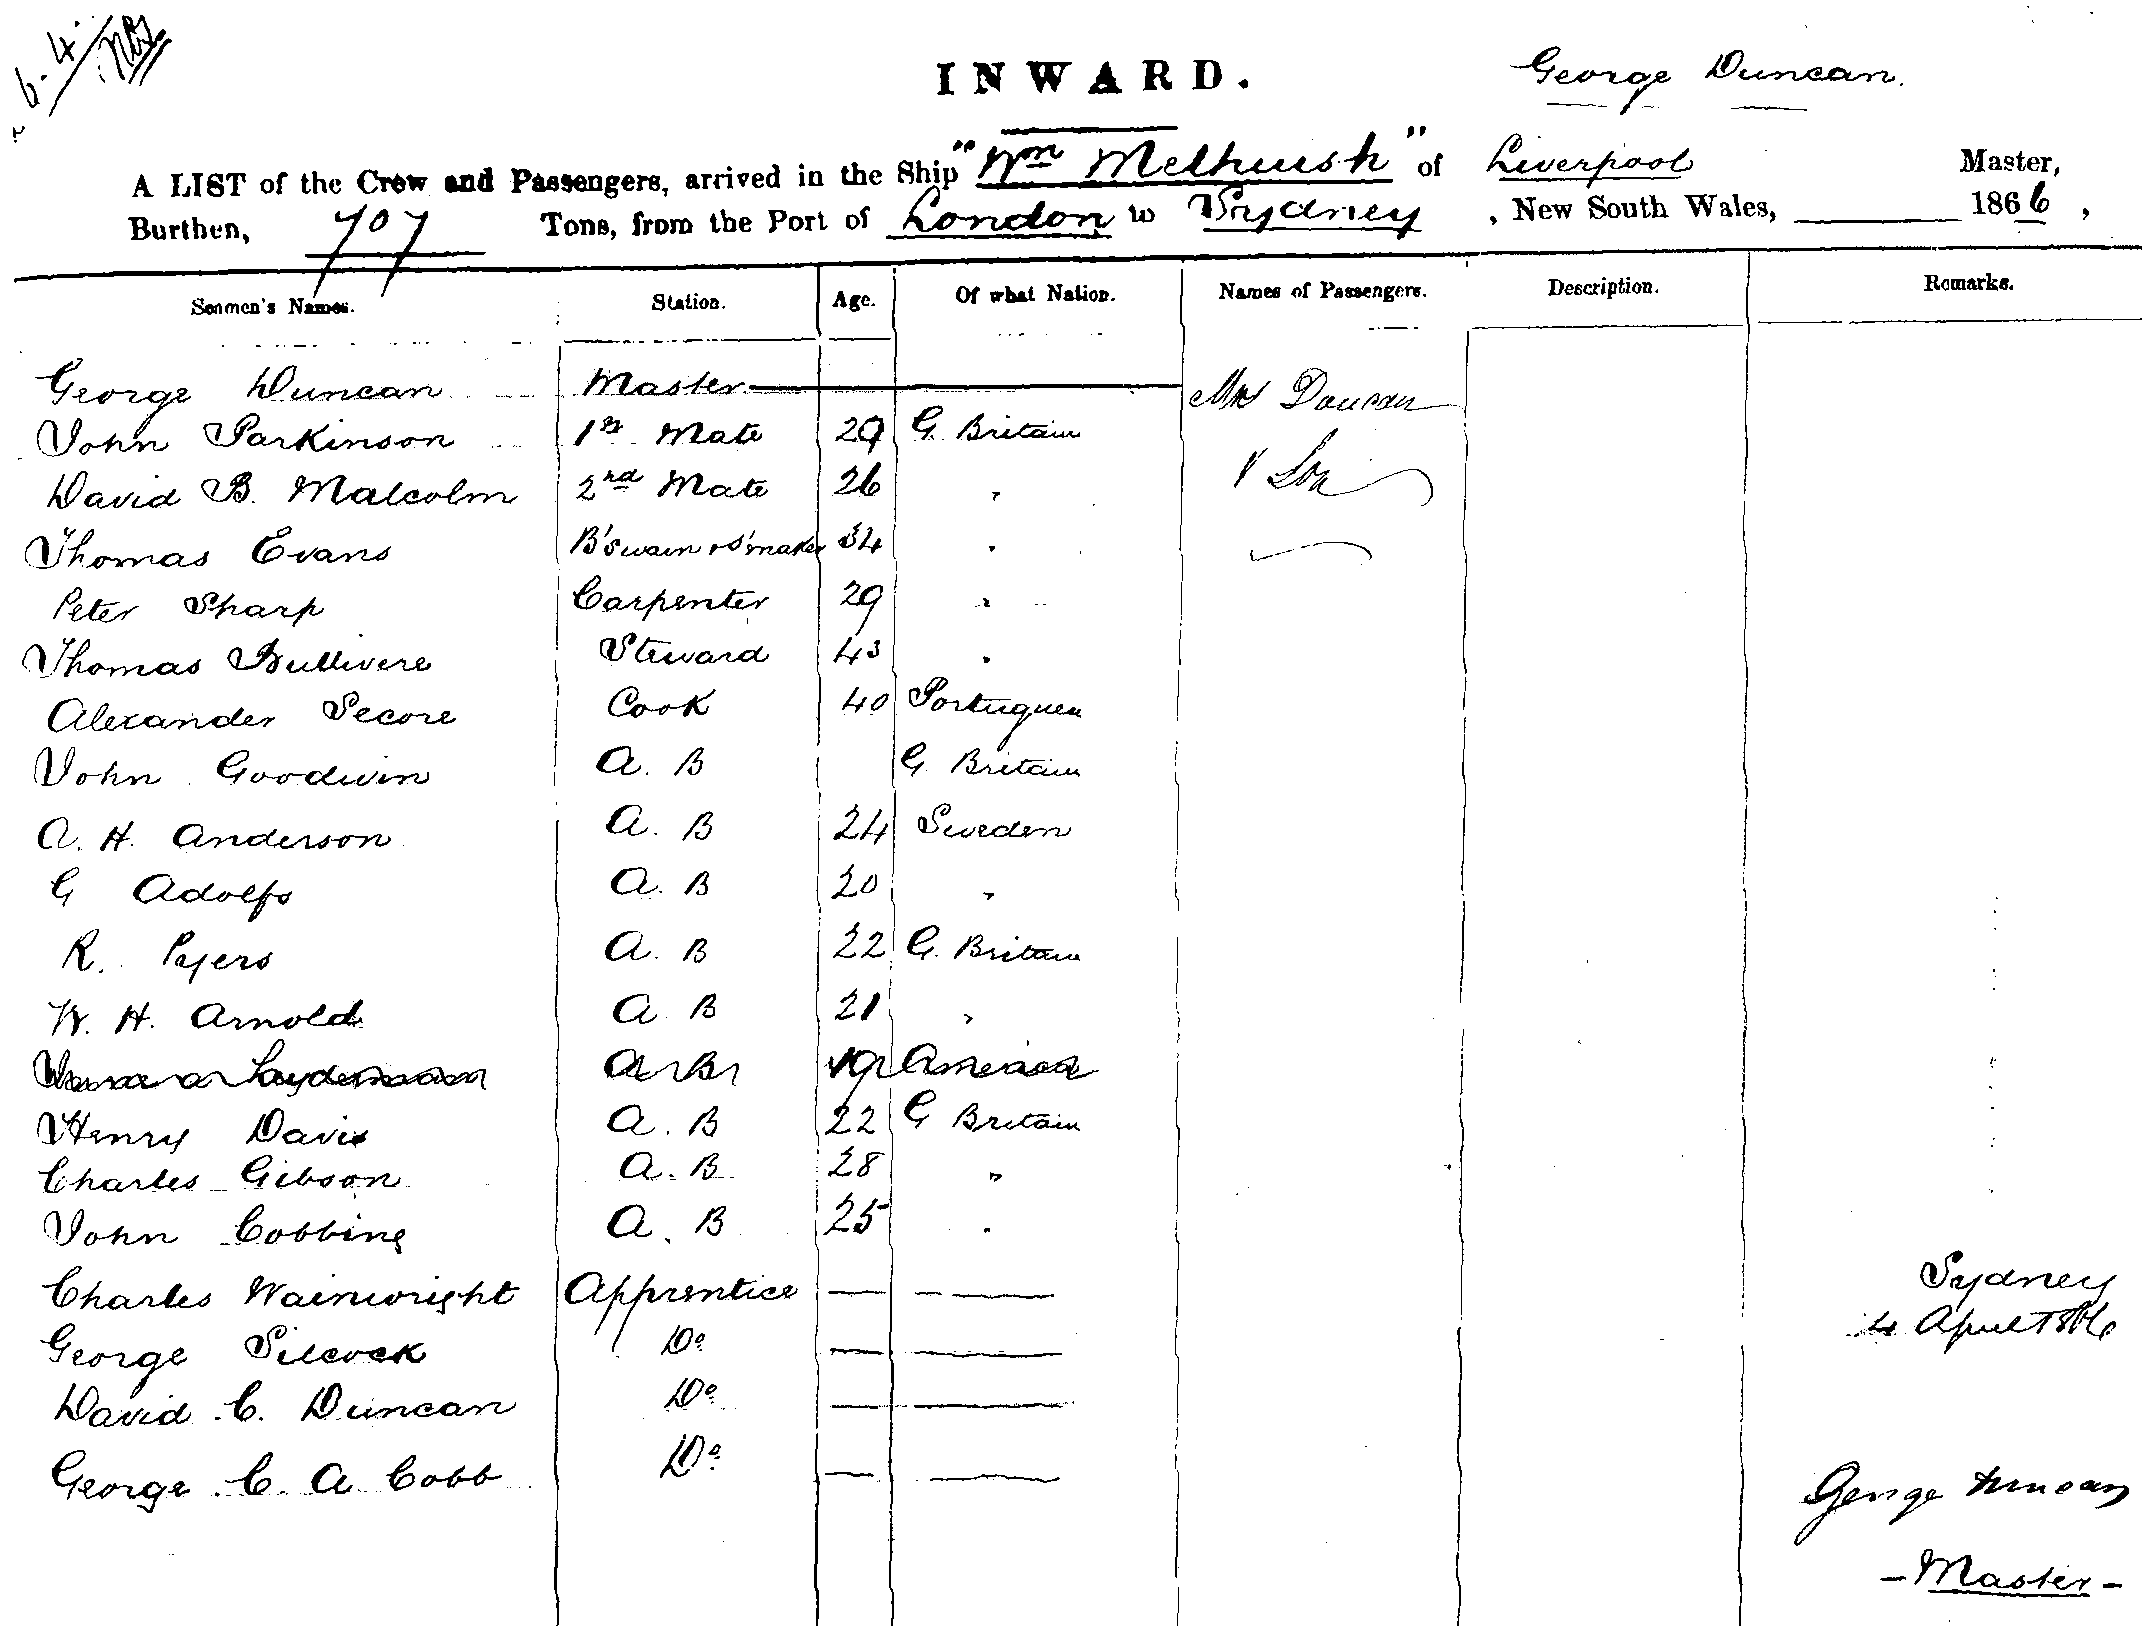 6.4.
INWARD.
George Duncan.
A LIST of the Crew and Passengers, arrived in the Ship "Wm Melhuish" of Liverpool Master,
Burthen, 707 Tons, from the Port of London to Sydney, New South Wales, 1866,
Seamen's Names. Station. Age. Of what Nation. Names of Passengers. Description. Remarks.
George Duncan Master Mrs Duncan
John Parkinson 1st Mate 29 G. Britain
David B. Malcolm 2nd Mate 26 " & Son
Thomas Evans B'swain & S'maker 34 "
Peter Sharp Carpenter 29 "
Thomas Bullivere Steward 43 "
Alexander Secore Cook 40 Portuguese
John Goodwin A. B G. Britain
A. H. Anderson A. B 24 Sweden
G Adolfs A. B 20 "
R. Pyers A. B 22 G. Britain
W. H. Arnold A B 21 "
A B 19 America
Henry Davis A. B 22 G Britain
Charles Gibson A. B 28 "
John Cobbing A. B 25 "
Charles Wainwright Apprentice — — Sydney
George Silcock Do — — 4 April 1866
David C. Duncan Do — —
George C. A Cobb Do — — George Duncan
- Master -